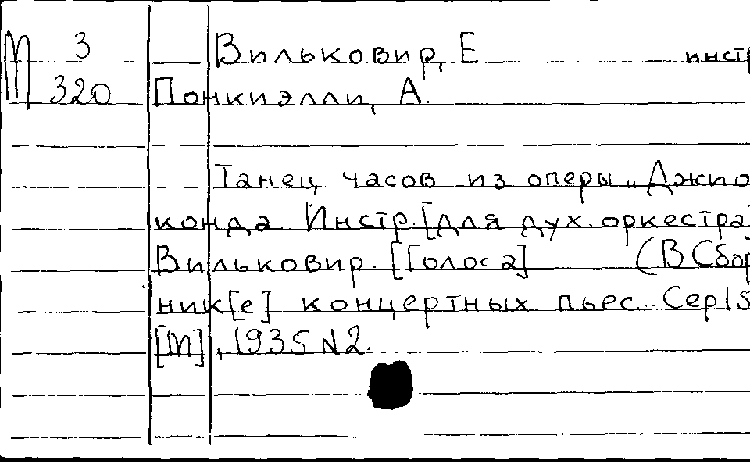 М 3 Вильковир, Е инстр
320 Понкиэлли, А.
Танец часов из оперы „Джио
конда. Инстр. [для дух. оркестра]
Вильковир. [Голоса] (В Сбор
ник[е] концертных пьес. Сер
[М], 1935 N2.